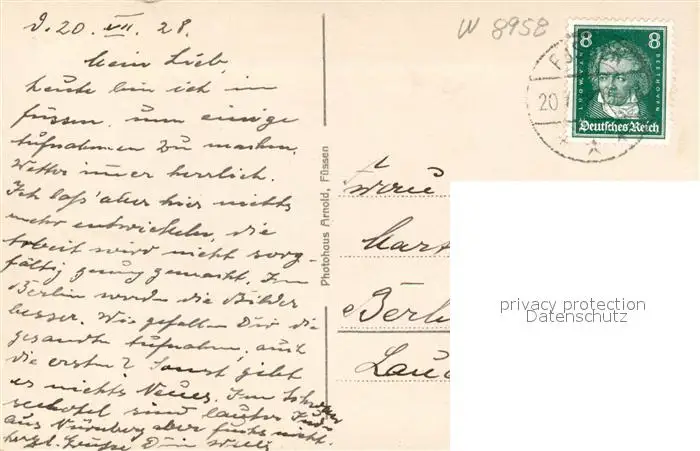 D. 20. VII. 28.
Mein Lieb,
heute bin ich in
Füssen, um einige
Aufnahmen zu machen.
Wetter immer herrlich.
Ich laß' aber hier nichts
mehr entwickeln, die
Arbeit wird nicht sorg-
fältig genug gemacht. In
Berlin werden die Bilder
besser. Wie gefallen Dir die
gesandte Aufnahm. auch
die ersten? Sonst gibt
es nichts Neues. Im
seehotel sind lauter
aus Nürnberg aber nicht.
herzl. Grüsse Dein Willi
Photohaus Arnold, Füssen
W 8958
8 8
LUDW. VAN BEETHOVEN
Deutsches Reich
20
Frau
Mart
Berli
Lau
privacy protection
Datenschutz